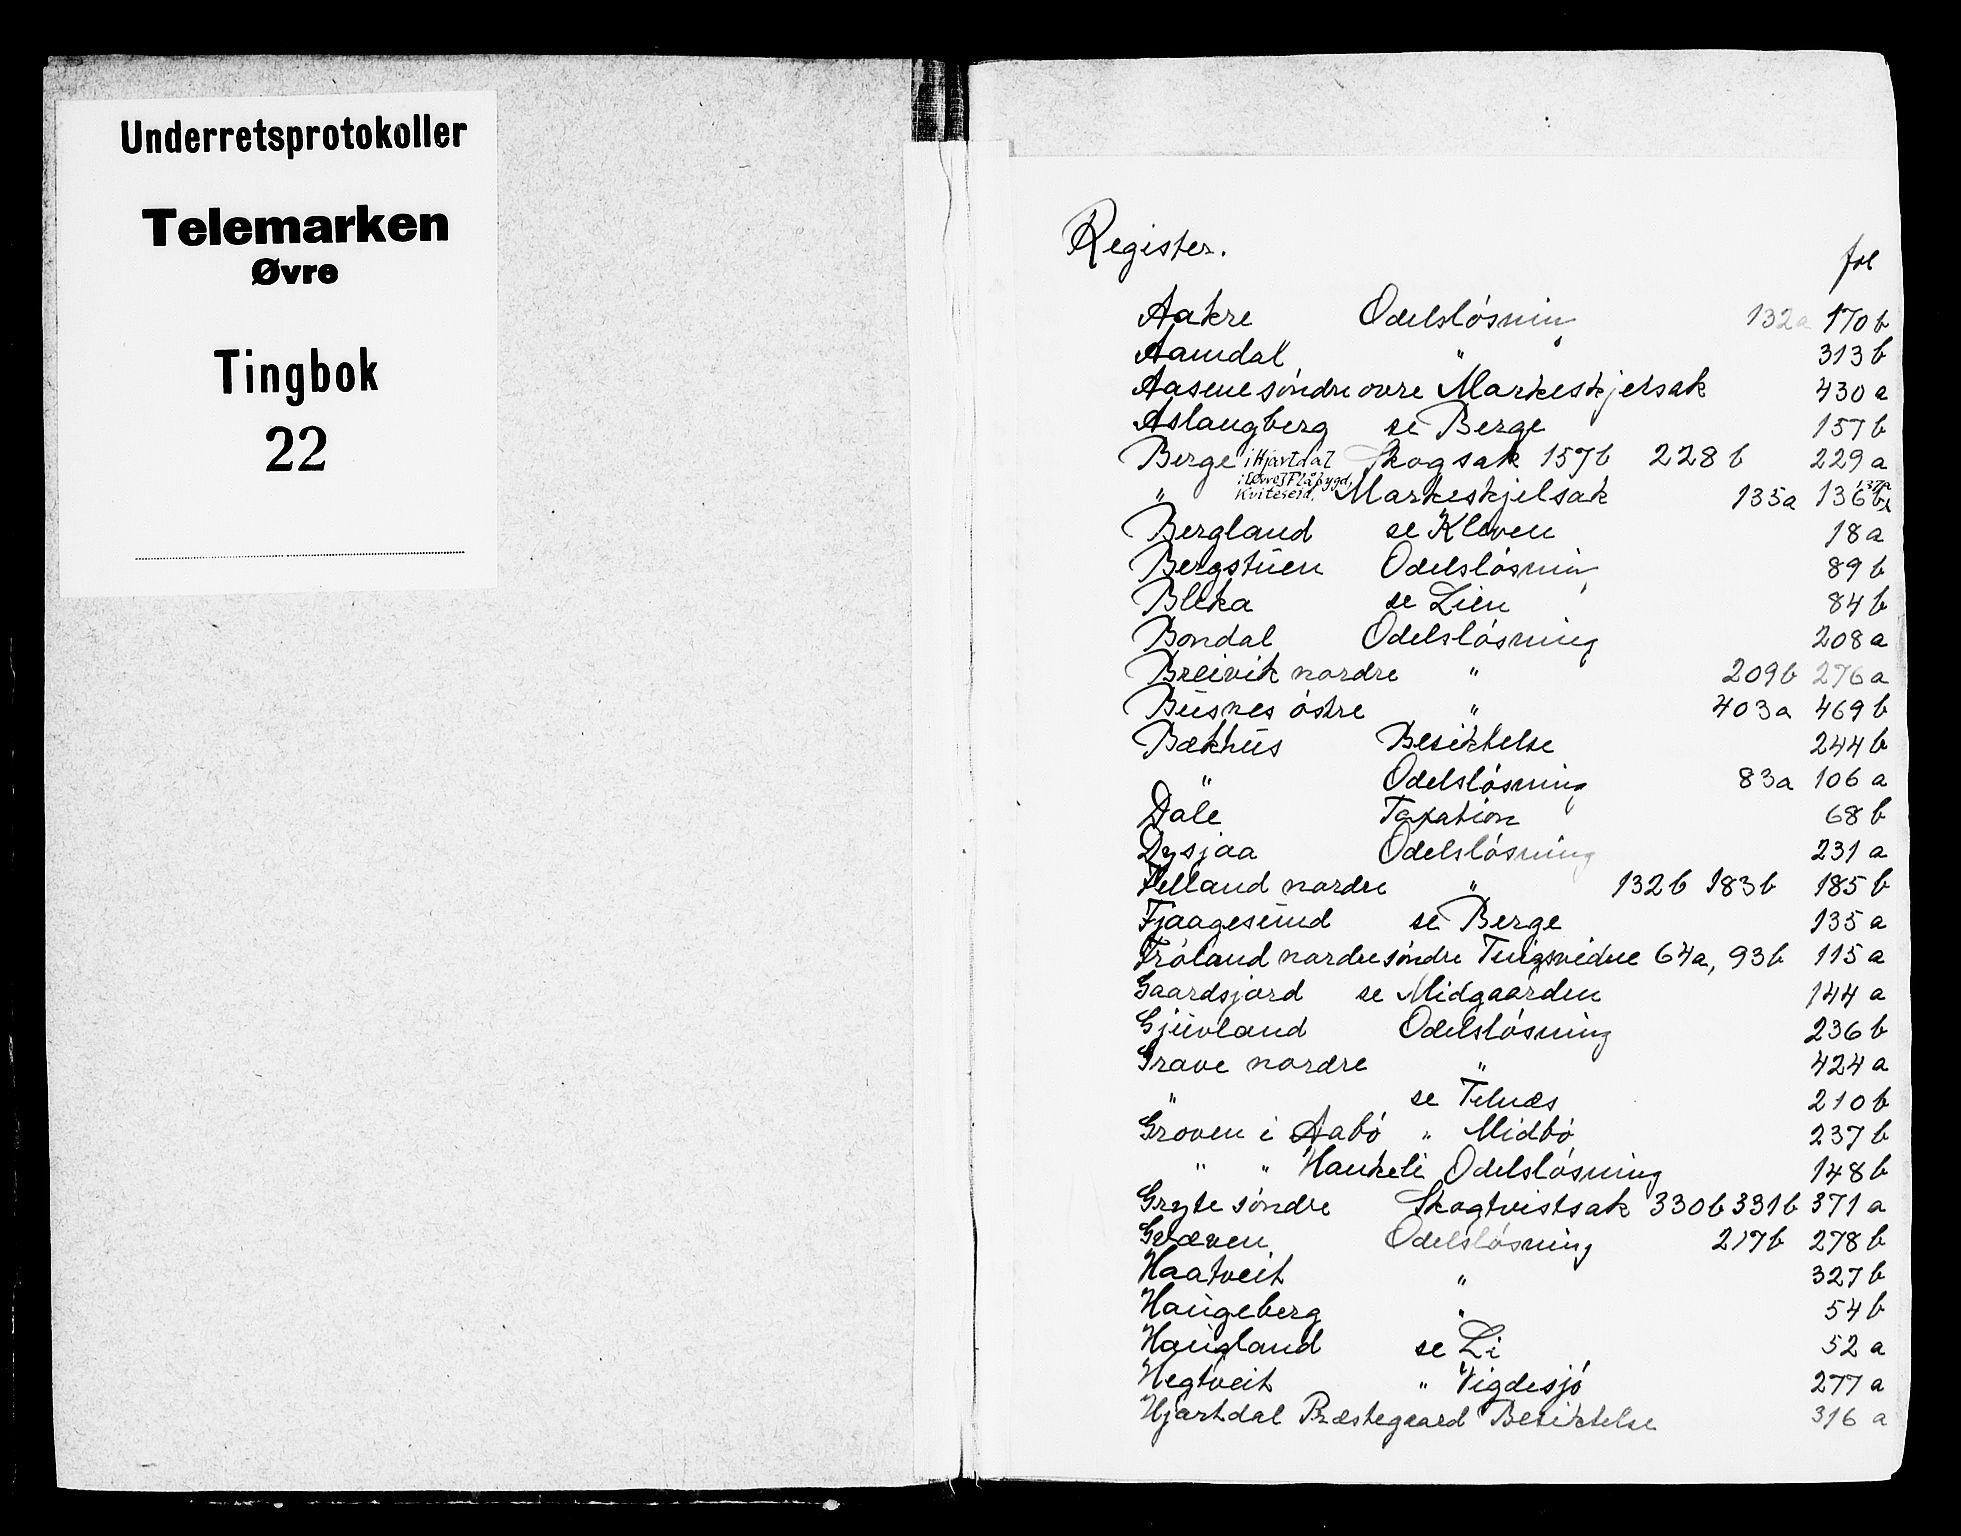 Underretsprotokoller
Telemarken
Øvre
Tingbok
22
Register.
fol
Aakre Odelsløsning 132a 170b
Aamdal " 313b
Aasene søndre øvre Markeskjelsak 430a
Aslaugberg se Berge 157b
Berge i Hjartdal Skogsak 157b 228b 229a
" i [Øvre] Flåbygd, Kviteseid, Markeskjelsak 135a 136b 137a
Bergland se Kleven 18a
Bergstuen Odelsløsning 89b
Bleka se Lien 84b
Bondal Odelsløsning 208a
Breivik nordre " 209b 276a
Busnes østre " 403a 469b
Bækhus Besiktelse 244b
" Odelsløsning 83a 106a
Dale Taxation 68b
Dysjaa Odelsløsning 231a
Felland nordre " 132b 183b 185b
Fjaagesund se Berge 135a
Frøland nordre søndre Tingsvidne 64a, 93b 115a
Gaardsjord se Midgaarden 144a
Gjuvland Odelsløsning 236b
Grave nordre " 424a
" se Telnæs 210b
Groven i Aabø " Midbø 237b
" " Haukeli Odelsløsning 148b
Gryte søndre Skogtvistsak 330b 331b 371a
Græven Odelsløsning 217b 278b
Haatveit " 327b
Haugeberg " 54b
Haugland se Li 52a
Hegtveit " Vigdesjø 277a
Hjartdal Præstegaard Besiktelse 316a